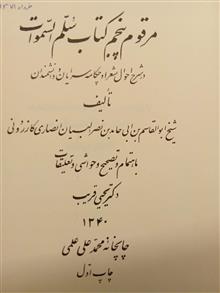 خرداد ۱۳۷۱
مرقوم پنجم کتاب سُلّم السّموات
در شرح احوال شعرا و چکامه سرایان و دانشمندان
تألیف
شیخ ابوالقاسم بن ابی حامد بن نصر البیان انصاری کازرونی
باهتمام و تصحیح و حواشی و تعلیقات
دکتر یحیی قریب
۱۳۴۰
چاپخانه محمد علی علمی
چاپ اول